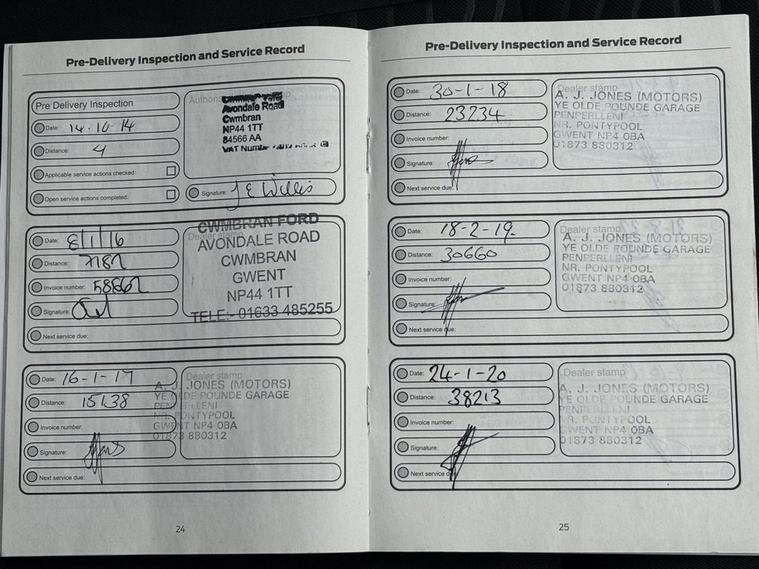 Pre-Delivery Inspection and Service Record
Pre Delivery Inspection
Date: 14.10.14
Distance: 4
Applicable service actions checked:
Open service actions completed:
Avondale Road
Cwmbran
NP44 1TT
84566 AA
VAT Number
Signature: J E Willis
Date: 8/1/16
Distance: 7187
Invoice number:
Signature:
Next service due:
Dealer stamp
CWMBRAN FORD
AVONDALE ROAD
CWMBRAN
GWENT
NP44 1TT
TELE:- 01633 485255
Date: 16-1-17
Distance: 15138
Invoice number:
Signature:
Next service due:
Dealer stamp
A. J. JONES (MOTORS)
YE OLDE POUNDE GARAGE
PENPERLLENI
NR. PONTYPOOL
GWENT NP4 0BA
01873 880312
24
Pre-Delivery Inspection and Service Record
Date: 30-1-18
Distance: 23234
Invoice number:
Signature:
Next service due:
Dealer stamp
A. J. JONES (MOTORS)
YE OLDE POUNDE GARAGE
PENPERLLENI
NR. PONTYPOOL
GWENT NP4 0BA
01873 880312
Date: 18-2-19.
Distance: 30660
Invoice number:
Signature:
Next service due:
Dealer stamp
A. J. JONES (MOTORS)
YE OLDE POUNDE GARAGE
PENPERLLENI
NR. PONTYPOOL
GWENT NP4 0BA
01873 880312
Date: 24-1-20
Distance: 38213
Invoice number:
Signature:
Next service due:
Dealer stamp
A. J. JONES (MOTORS)
YE OLDE POUNDE GARAGE
PENPERLLENI
NR. PONTYPOOL
GWENT NP4 0BA
01873 880312
25